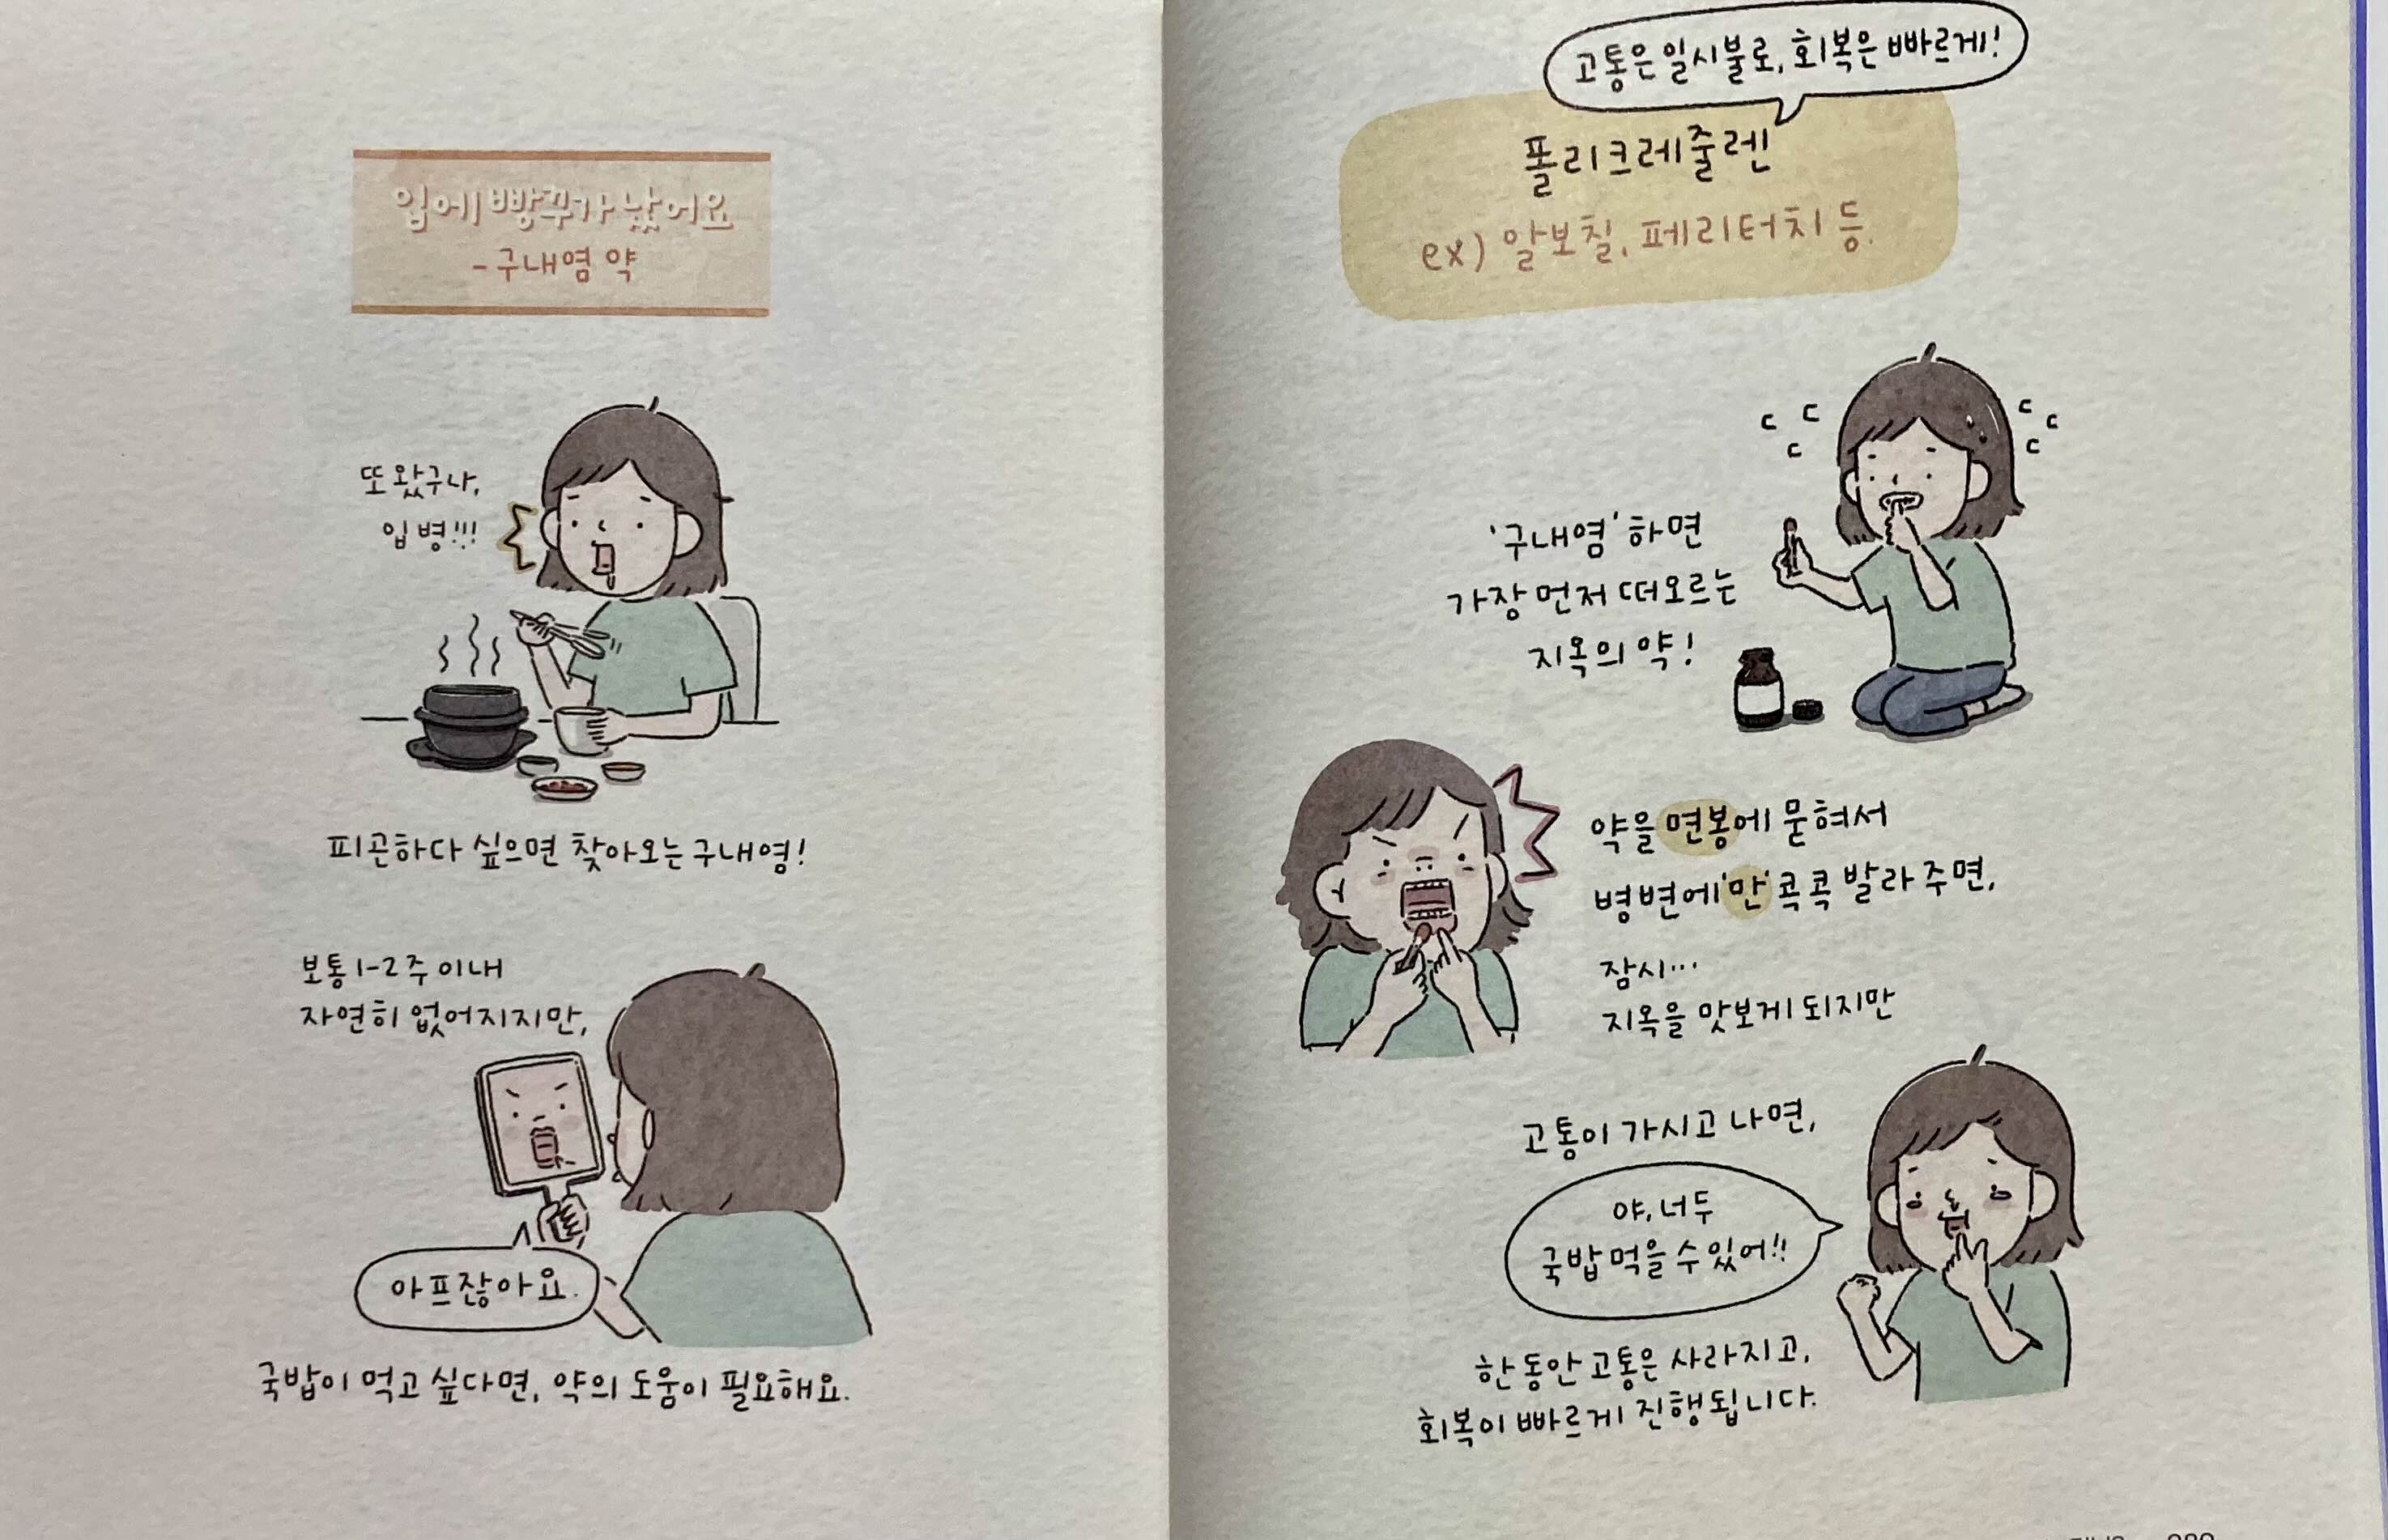 입에 빵꾸가 났어요
- 구내염 약
또 왔구나,
입병!!!
피곤하다 싶으면 찾아오는 구내염!
보통 1-2주 이내
자연히 없어지지만,
아프잖아요.
국밥이 먹고 싶다면, 약의 도움이 필요해요.
고통은 일시불로, 회복은 빠르게!
폴리크레줄렌
ex) 알보칠, 페리터치 등.
ㄷ ㄷ ㄷ
ㄷ ㄷ ㄷ
'구내염' 하면
가장 먼저 떠오르는
지옥의 약!
약을 면봉에 묻혀서
병변에'만' 콕콕 발라 주면,
잠시...
지옥을 맛보게 되지만
고통이 가시고 나면,
야, 너두
국밥 먹을 수 있어!!
한동안 고통은 사라지고,
회복이 빠르게 진행됩니다.